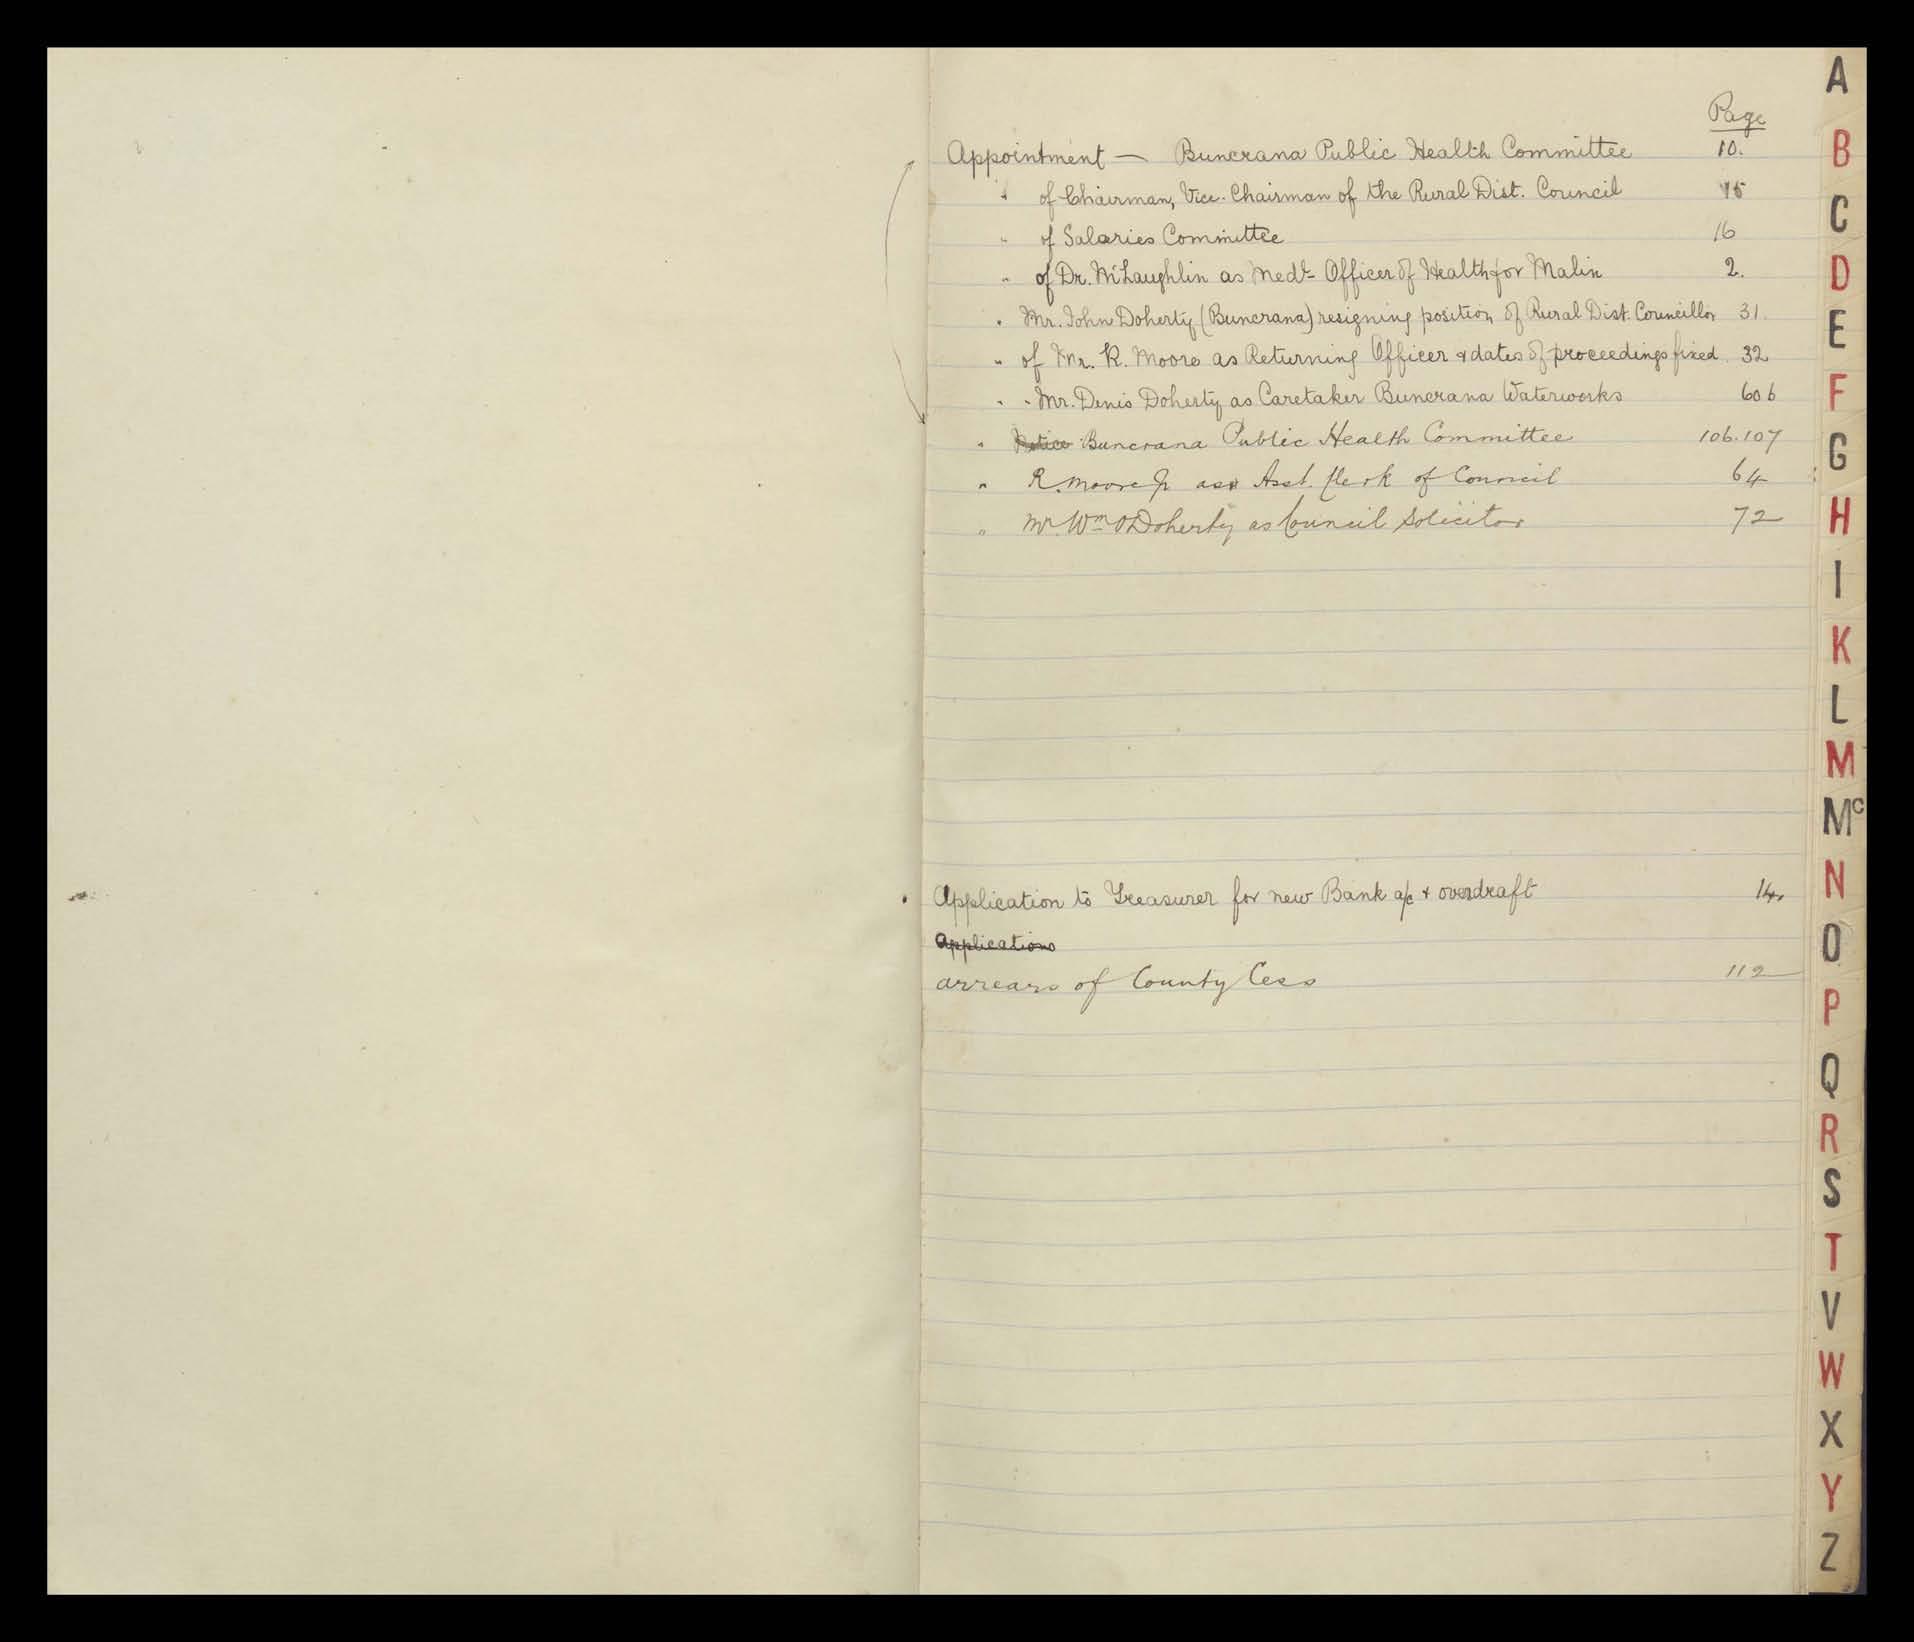 Page
Appointment — Buncrana Public Health Committee 10.
" of Chairman, Vice-Chairman of the Rural Dist. Council 15
" of Salaries Committee 16
" of Dr. McLaughlin as Medl Officer of Health for Malin 2.
" Mr. John Doherty (Buncrana) resigning position of Rural Dist. Councillor 31.
" of Mr. R. Moore as Returning Officer & dates of proceedings fixed 32
" " Mr. Denis Doherty as Caretaker Buncrana Waterworks 60 b
" Notice Buncrana Public Health Committee 106.107
" R. Moore Jr as Asst. Clerk of Council 64
" Mr. Wm O'Doherty as Council Solicitor 72
Application to Treasurer for new Bank a/c & overdraft 14
Applications
arrears of County Cess 112
A
B
C
D
E
F
G
H
I
K
L
M
Mc
N
O
P
Q
R
S
T
V
W
X
Y
Z